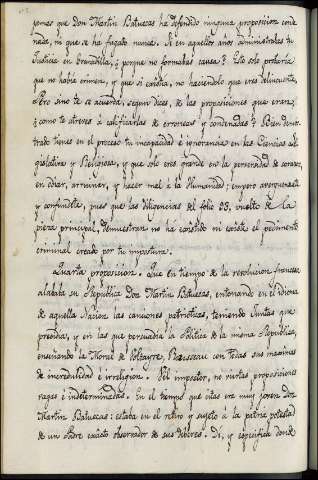 jonas que Don Martin Batuecas ha defendido ninguna proposicion conde
nada, ni que se ha fugado nunca. Si en aquellos años administrabas tu
Justicia en Granadilla, ¿porque no formabas causa? Esto solo probaria
que no habia crimen, y que si existia, no haciendolo que eres delincuente,
Pero sino te se acuerda, segun dices, de las proposiciones que eran;
¿como te atreves a calificarlas de erroneas y condenadas? Bien demos
trado tienes en el proceso tu incapacidad e ignorancia en las Ciencias Le
gislativa y Religiosa, y que solo eres grande en la perversidad de corazon,
en odiar, arruinar, y hacer mal a la Humanidad; empero averguenzate
y confundete, pues que las diligencias del folio 23, vuelto de la
pieza principal, demuestran no ha existido ni existe el pedimento
criminal creado por tu impostura.
Quarta proposicion. Que en tiempo de la revolucion francesa
alababa su Republica Don Martin Batuecas, entonando en el idioma
de aquella Nacion las canciones patrioticas, teniendo Juntas que
presidia, y en las que persuadia la Politica de la misma Republica,
enseñando la Moral de Voltayre, Rousseau con todas sus maximas
de incredulidad e irreligion. Vil impostor, no viertas proposiciones
vagas e indeterminadas. En el tiempo que citas era muy joven Don
Martin Batuecas: estaba en el retiro y sujeto a la patria potestad
de un Padre exacto observador de sus deberes. Di, y especifica donde